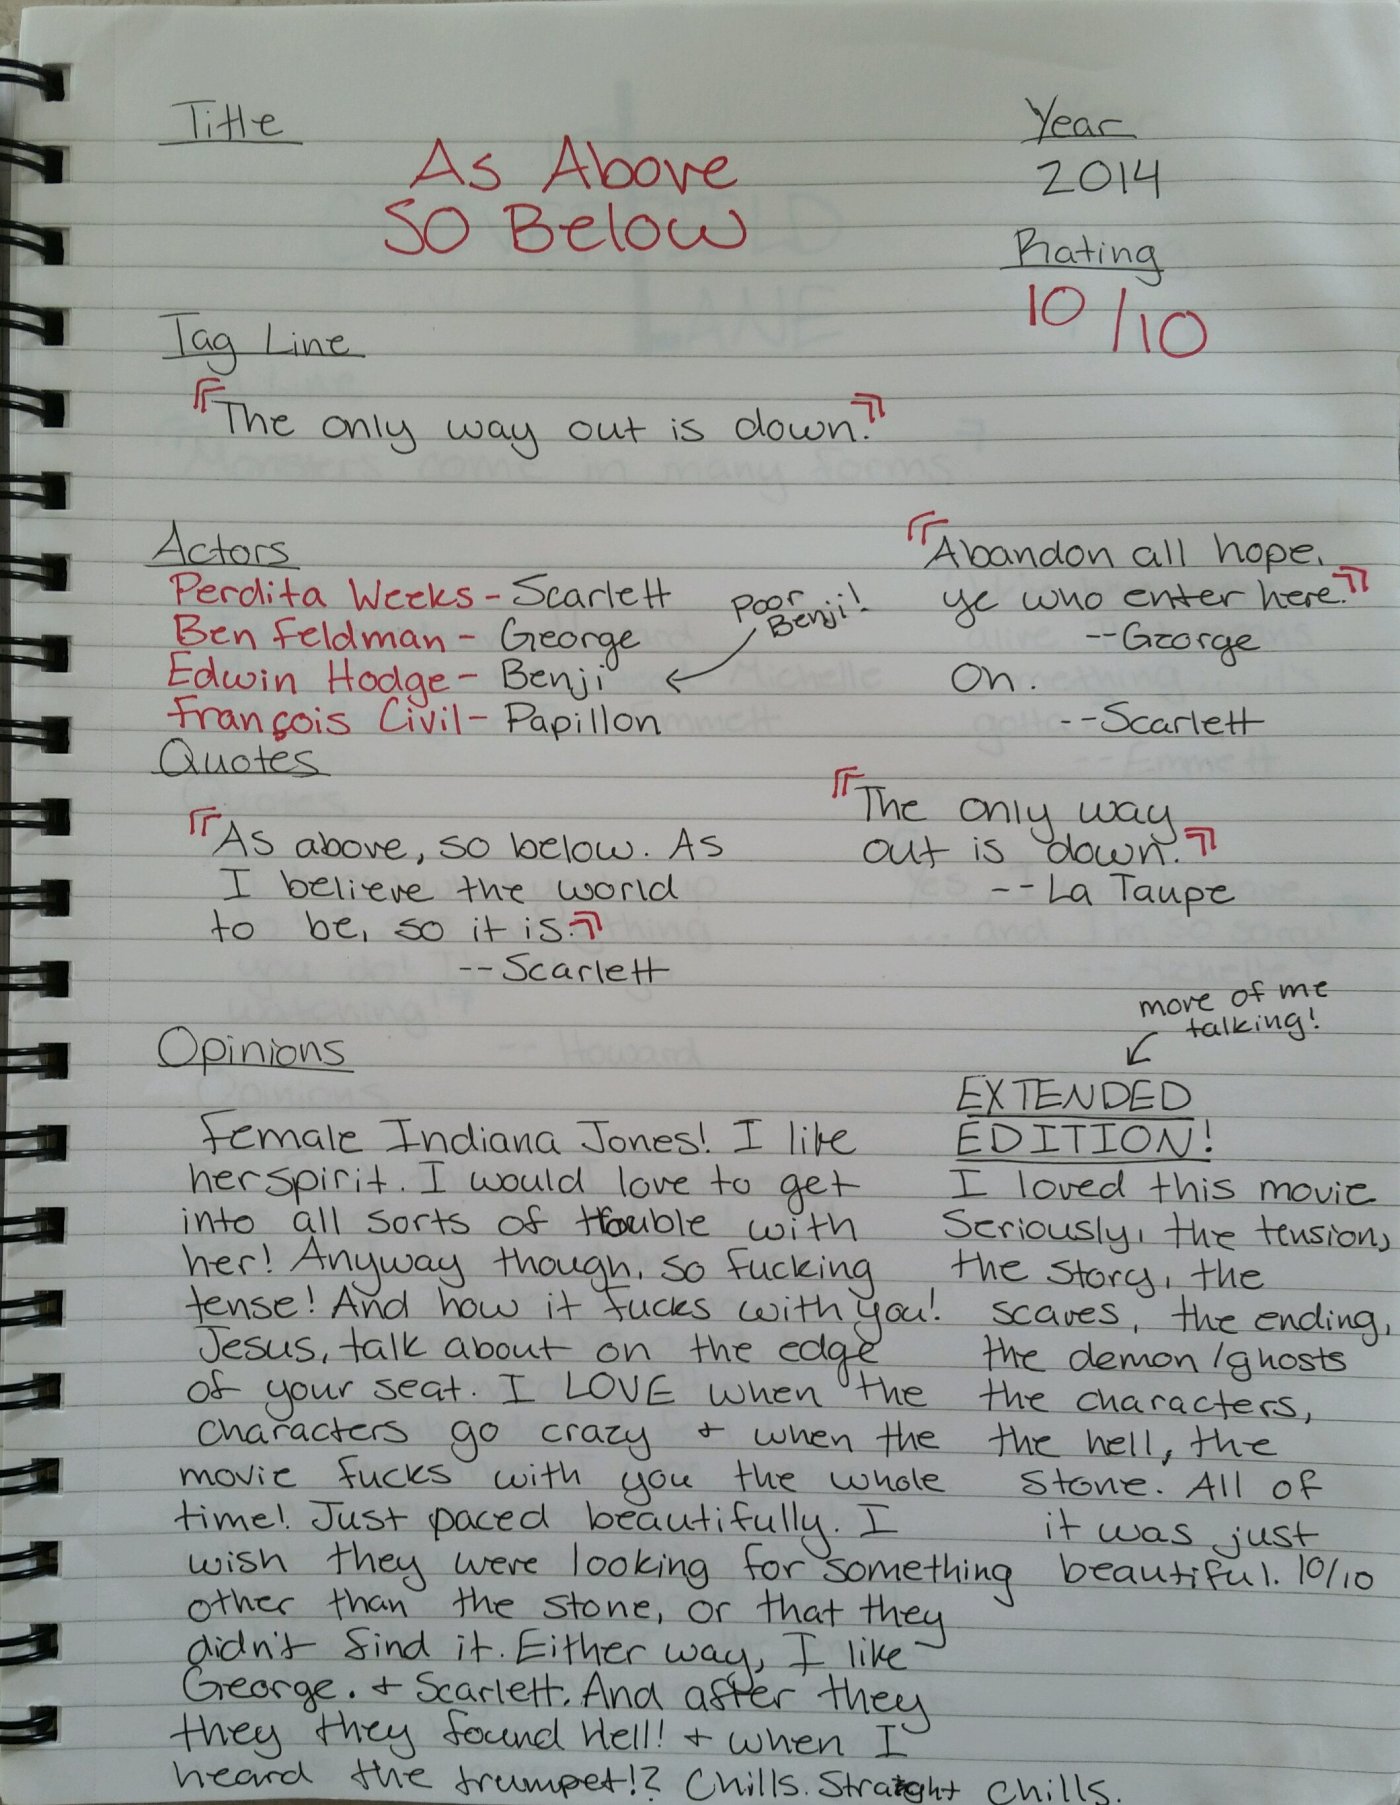 Title
As Above
So Below
Year
2014
Rating
10/10
Tag Line
"The only way out is down."
Actors
Perdita Weeks - Scarlett
Ben Feldman - George
Edwin Hodge - Benji
François Civil - Papillon
Poor
Benji!
"Abandon all hope,
ye who enter here."
--George
Oh.
--Scarlett
Quotes
"As above, so below. As
I believe the world
to be, so it is."
--Scarlett
"The only way
out is down."
--La Taupe
Opinions
Female Indiana Jones! I like
her spirit. I would love to get
into all sorts of trouble with
her! Anyway though, so fucking
tense! And how it fucks with you!
Jesus, talk about on the edge
of your seat. I LOVE when the
characters go crazy + when the
movie fucks with you the whole
time! Just paced beautifully. I
wish they were looking for something
other than the stone, or that they
didn't find it. Either way, I like
George. + Scarlett. And after they
they they found Hell! + when I
heard the trumpet!? Chills. Straight chills.
more of me
talking!
EXTENDED
EDITION!
I loved this movie
seriously, the tension,
the story, the
scares, the ending,
the demon/ghosts
the characters,
the hell, the
stone. All of
it was just
beautiful. 10/10